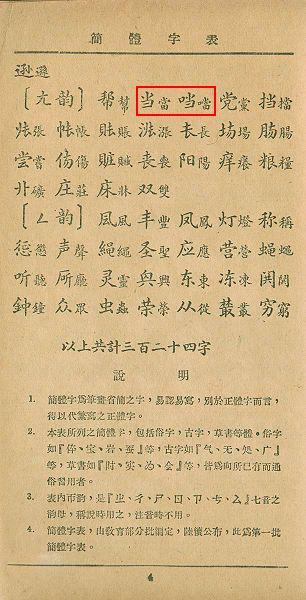 簡體字表
逊遜
〔ㄤ韵〕 帮幫 当當 𪠽噹 党黨 挡擋
张張 帐帳 账賬 涨漲 长長 场場 肠腸
尝嘗 伤傷 赃贓 丧喪 阳陽 痒癢 粮糧
卝礦 庄莊 床牀 双雙
〔ㄥ韵〕 风風 丰豐 凤鳳 灯燈 称稱
惩懲 声聲 绳繩 圣聖 应應 营營 蝇蠅
听聽 厅廳 灵靈 兴興 东東 冻凍
钟鐘 众眾 虫蟲 荣榮 从從 䕺叢 穷窮
以上共計三百二十四字
說明
1. 簡體字為筆畫省簡之字，易認易寫，別於正體字而言，
得以代繁寫之正體字。
2. 本表所列之簡體字，包括俗字，古字，草書等體。俗字
如『体、宝、岩、蚕』等，古字如『气、无、处、广』
等，草書如『时、实、为、会』等，皆為向所已有而通
俗習用者。
3. 表內韵，是『ㄓ、ㄔ、ㄕ、ㄖ、ㄗ、ㄘ、ㄙ』七音之
韵母，稱說時用之，注音時不用。
4. 簡體字表，由教育部分批編定，陸續公布，此為第一批
簡體字表。
4